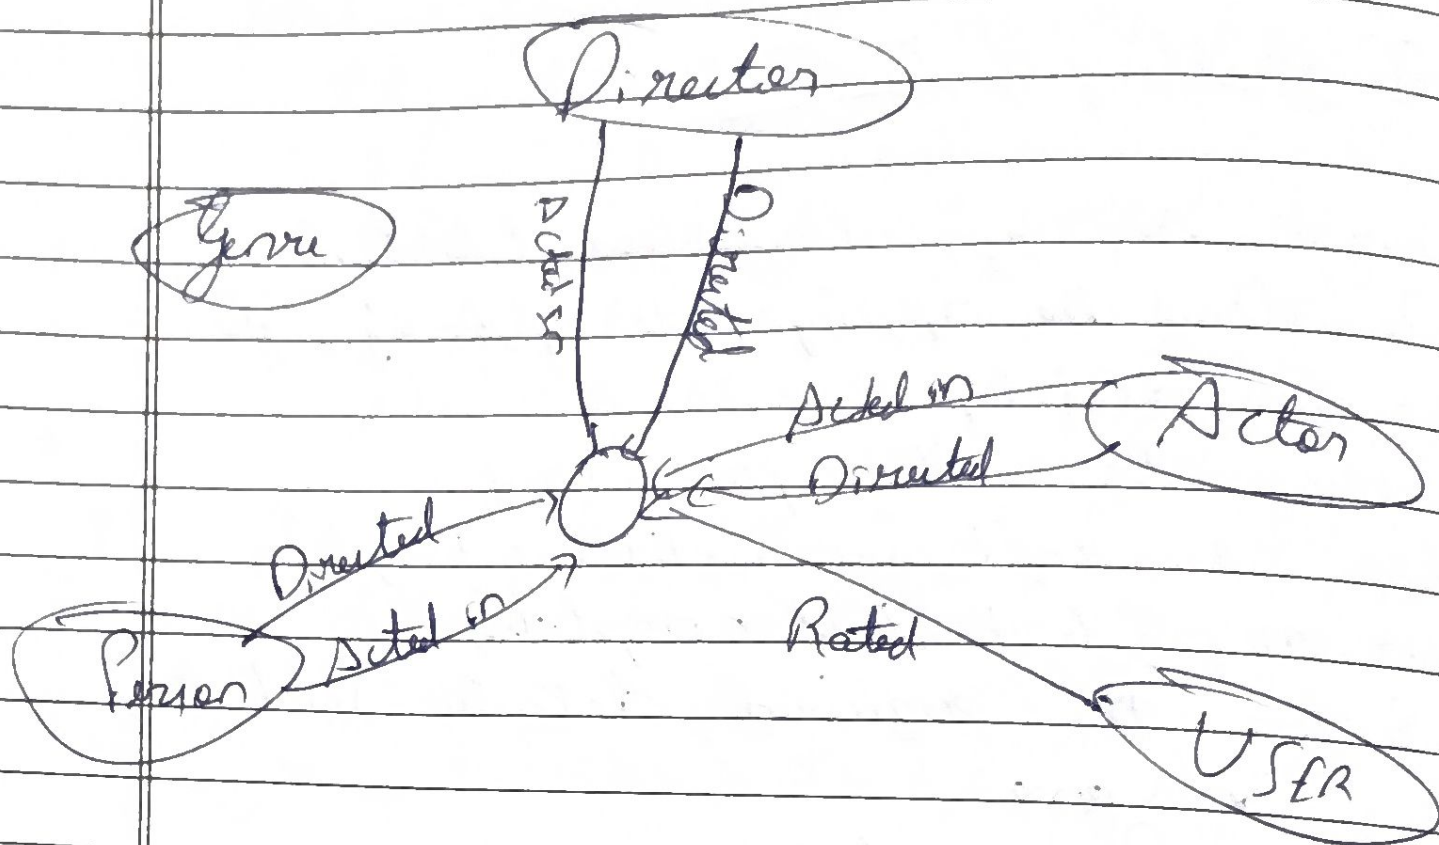 Director
Genre
Acted in
Directed
Acted in
Actor
Directed
Directed
Acted in
Rated
Person
USER